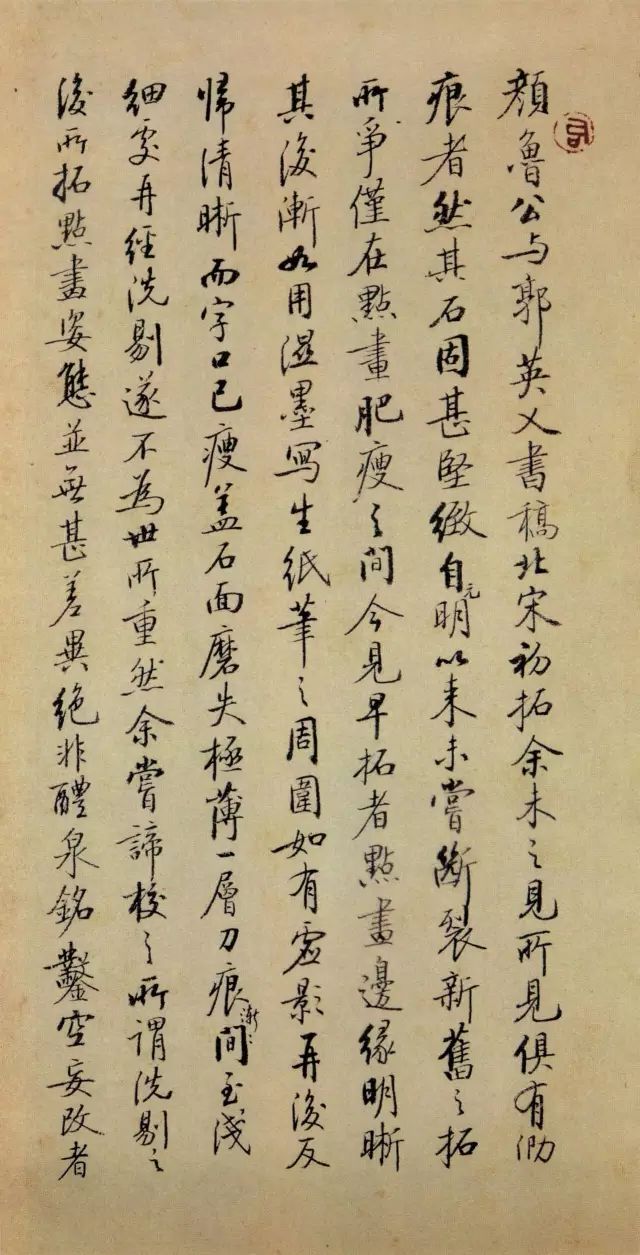 顏魯公与郭英乂書稿北宋初拓余未之見所見俱有泐
痕者然其石固甚堅緻自元明以来未嘗斷裂新舊之拓
所爭僅在點畫肥瘦之間今見早拓者點畫邊緣明晰
其後漸如用濕墨寫生紙筆之周圍如有虛影再後反
歸清晰而字口已瘦盖石面磨失極薄一層刀痕漸:間至淺
細處再經洗剔遂不為世所重然余嘗諦校之所謂洗剔之
後所拓點畫姿態並無甚差異絶非醴泉銘鑿空妄改者